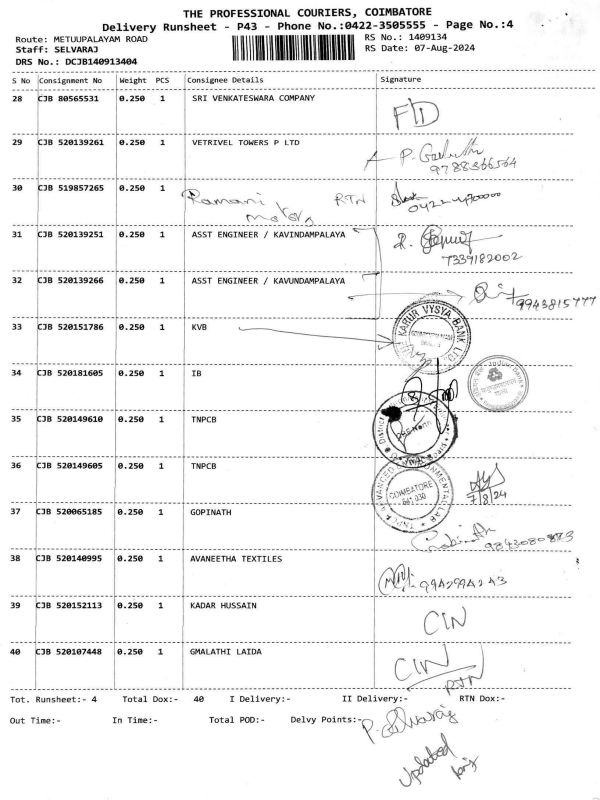 THE PROFESSIONAL COURIERS, COIMBATORE
Delivery Runsheet - P43 - Phone No.:0422-3505555 - Page No.:4
Route: METUUPALAYAM ROAD
RS No.: 1409134
Staff: SELVARAJ
RS Date: 07-Aug-2024
DRS No.: DCJB140913404
S No Consignment No Weight PCS Consignee Details Signature
28 CJB 80565531 0.250 1 SRI VENKATESWARA COMPANY
F/D
29 CJB 520139261 0.250 1 VETRIVEL TOWERS P LTD
9788366564
30 CJB 519857265 0.250 1 Ramani Motors RTN
31 CJB 520139251 0.250 1 ASST ENGINEER / KAVINDAMPALAYA
7339182002
32 CJB 520139266 0.250 1 ASST ENGINEER / KAVUNDAMPALAYA
9943815777
33 CJB 520151786 0.250 1 KVB
KARUR VYSYA BANK LTD
34 CJB 520181605 0.250 1 IB
Indian Bank
35 CJB 520149610 0.250 1 TNPCB
District
36 CJB 520149605 0.250 1 TNPCB
TNPCB ADVANCED ENVIRONMENTAL LAB
COIMBATORE
641 030
7/8/24
37 CJB 520065185 0.250 1 GOPINATH
Gobinath
9843080873
38 CJB 520140995 0.250 1 AVANEETHA TEXTILES
9942994243
39 CJB 520152113 0.250 1 KADAR HUSSAIN
CIN
40 CJB 520107448 0.250 1 GMALATHI LAIDA
CIN
RTN
Tot. Runsheet:- 4 Total Dox:- 40 I Delivery:- II Delivery:- RTN Dox:-
Out Time:- In Time:- Total POD:- Delvy Points:-
P. Selvaraj
Updated